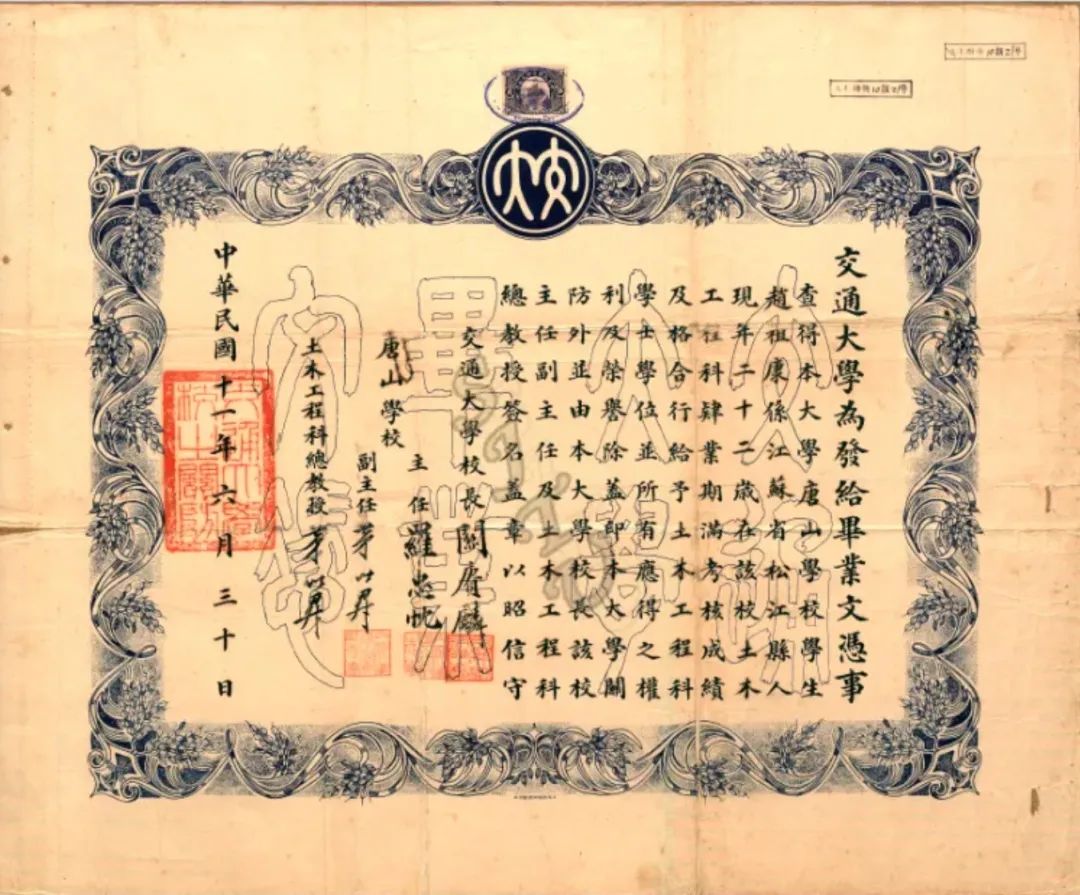 交大
交通大學為發給畢業文憑事
查得本大學唐山學校學生
趙祖康係江蘇省松江縣人
現年二十二歲在該校土木
工程科肄業期滿考核成績
及格合行給予土木工程科
學士學位並所有應得之權
利及榮譽除蓋印本大學關
防外並由本大學校長該校
主任副主任及土木工程科
總教授簽名蓋章以昭信守
交通大學校長關賡麟
唐山學校
主任羅忠忱
副主任茅以昇
土木工程科總教授茅以昇
中華民國十一年六月三十日
交通
大學
畢業
文憑